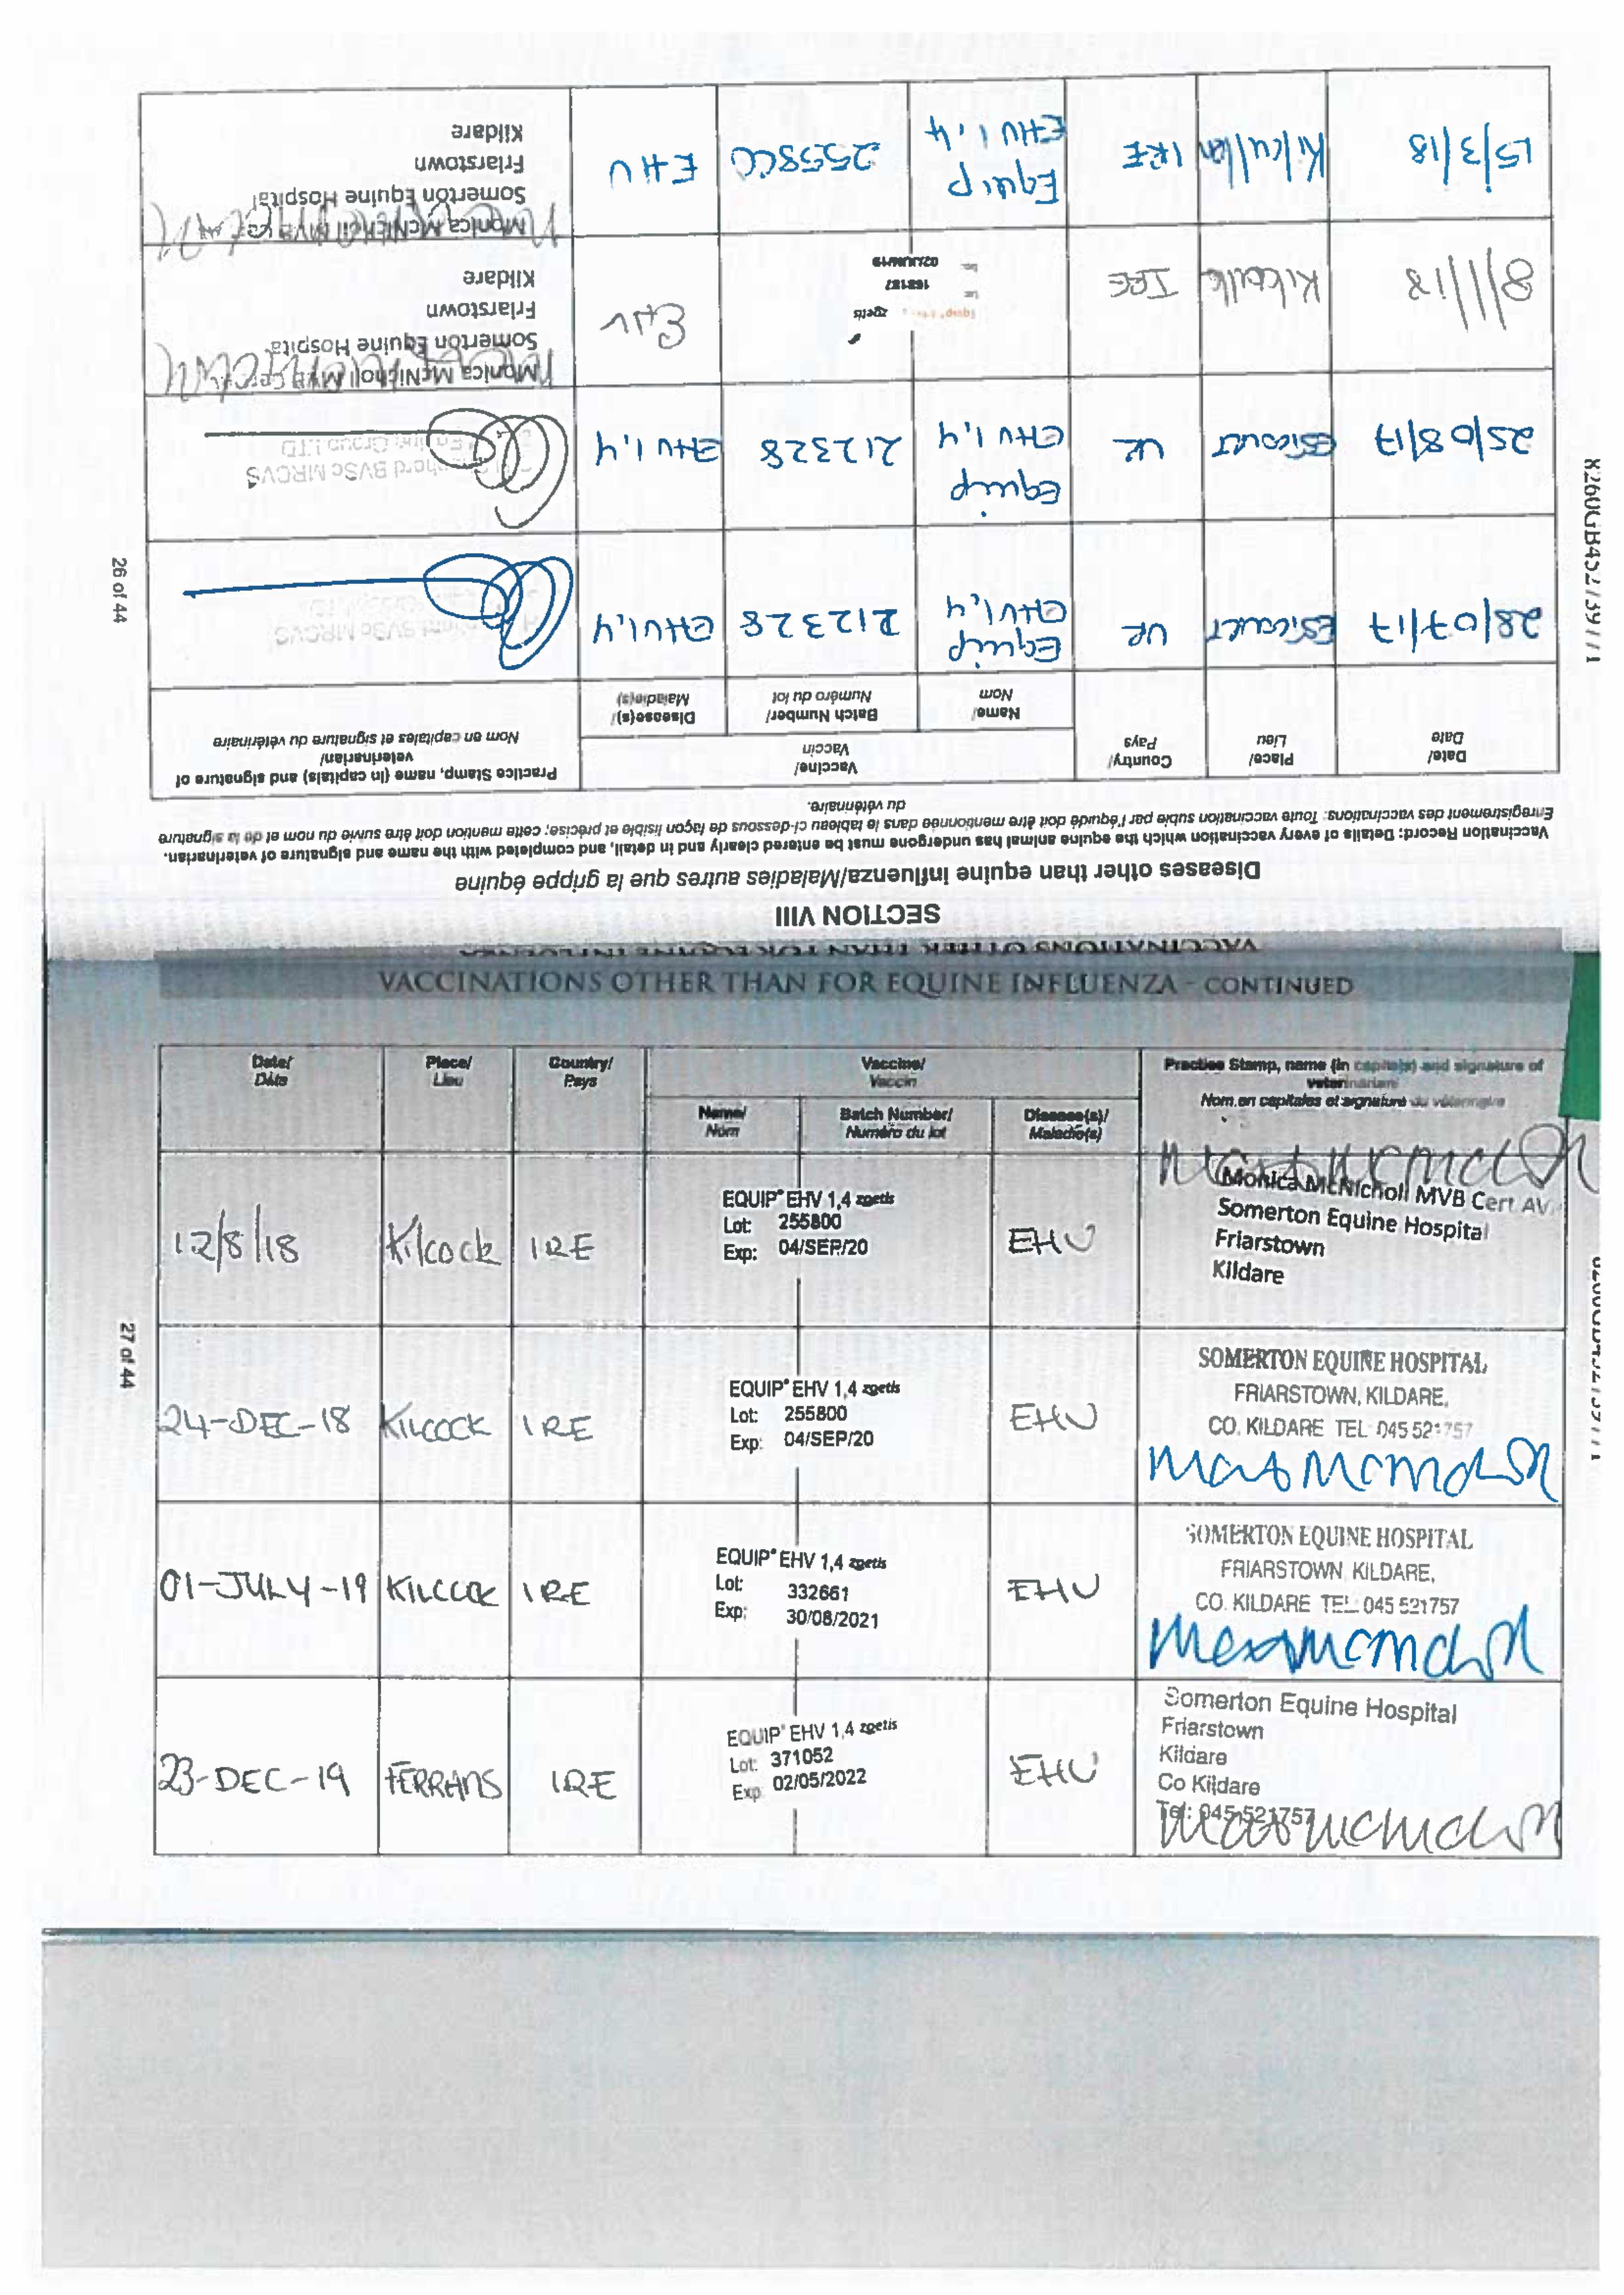 SECTION VIII
Diseases other than equine influenza/Maladies autres que la grippe équine
Vaccination Record: Details of every vaccination which the equine animal has undergone must be entered clearly and in detail, and completed with the name and signature of veterinarian.
Enregistrement des vaccinations: Toute vaccination subie par l'équidé doit être mentionnée dans le tableau ci-dessous de façon lisible et précise; cette mention doit être suivie du nom et de la signature
du vétérinaire.
Date/
Date
Place/
Lieu
Country/
Pays
Vaccine/
Vaccin
Name/
Nom
Batch Number/
Numéro du lot
Disease(s)/
Maladie(s)
Practice Stamp, name (in capitals) and signature of
veterinarian/
Nom en capitales et signature du vétérinaire
28/07/17
UK
Equip
EHV1,4
212328
EHV1,4
BVSc MRCVS
25/08/17
UK
Equip
EHV 1,4
212328
EHV 1,4
BVSc MRCVS
Equine Group LTD
8/1/18
IRE
zoetis
EHV
Monica McNicholl MVB Cert AV
Somerton Equine Hospital
Friarstown
Kildare
15/3/18
Kilcullen
IRE
Equip
EHV 1,4
255800
EHV
Monica McNicholl MVB Cert AV
Somerton Equine Hospital
Friarstown
Kildare
26 of 44
VACCINATIONS OTHER THAN FOR EQUINE INFLUENZA
VACCINATIONS OTHER THAN FOR EQUINE INFLUENZA - CONTINUED
Date/
Date
Place/
Lieu
Country/
Pays
Vaccine/
Vaccin
Name/
Nom
Batch Number/
Numéro du lot
Disease(s)/
Maladie(s)
Practice Stamp, name (in capitals) and signature of
veterinarian/
Nom en capitales et signature du vétérinaire
12/8/18
Kilcock
IRE
EQUIP® EHV 1,4 zoetis
Lot: 255800
Exp: 04/SEP/20
EHV
Monica McNicholl MVB Cert AV
Somerton Equine Hospital
Friarstown
Kildare
24-DEC-18
KILCOCK
IRE
EQUIP® EHV 1,4 zoetis
Lot: 255800
Exp: 04/SEP/20
EHV
SOMERTON EQUINE HOSPITAL
FRIARSTOWN, KILDARE,
CO. KILDARE TEL: 045 521757
01-JULY-19
KILCOCK
IRE
EQUIP® EHV 1,4 zoetis
Lot: 332661
Exp: 30/08/2021
EHV
SOMERTON EQUINE HOSPITAL
FRIARSTOWN, KILDARE,
CO. KILDARE TEL: 045 521757
23-DEC-19
FERRANS
IRE
EQUIP® EHV 1,4 zoetis
Lot: 371052
Exp 02/05/2022
EHV
Somerton Equine Hospital
Friarstown
Kildare
Co Kildare
Tel: 045 521757
27 of 44